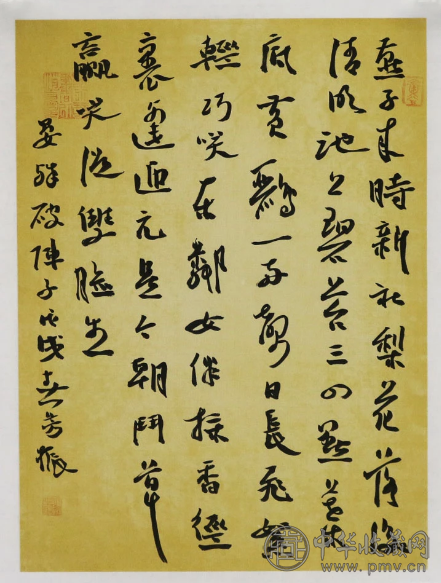 燕子来時新社梨花落後
清明池上碧苔三四點葉
底黄鸝一两聲日長飛絮
輕巧咲東鄰女伴採香徑
裏逢迎元是今朝鬥草
贏咲從雙臉生
晏殊破陣子戊戌芳振
中华收藏网
www.pmv.cn